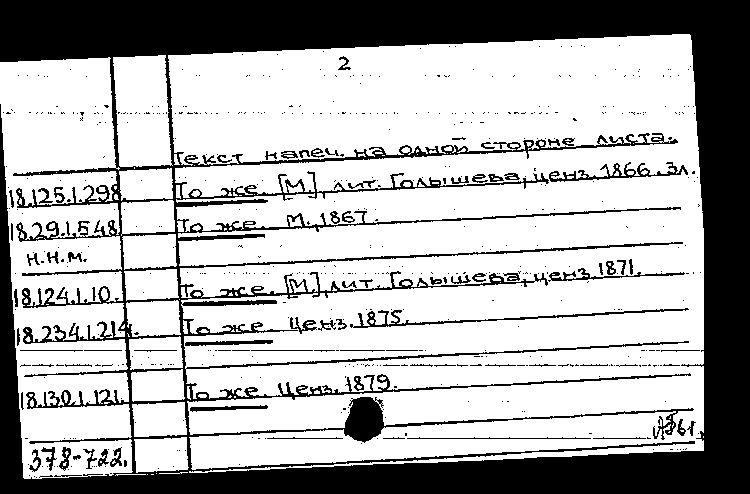 2
Текст напеч. на одной стороне листа.
18.125.1.298. То же. [М.], лит. Голышева, ценз. 1866. 3л.
18.29.1.548 То же. М., 1867.
н.н.м.
18.124.1.10. То же. [М.], лит. Голышева, ценз. 1871.
18.234.1.214. То же. Ценз. 1875.
18.130.1.121. То же. Ценз. 1879.
378-722.